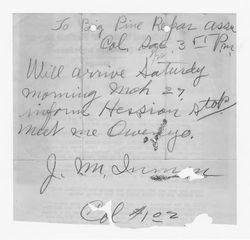 To Big Pine Repar assn
Col, 3 Pm
Will arrive Saturdy
morning Mch 27
inform Hession Stop
meet me Owenyo.
J. M. Inman
Col #102